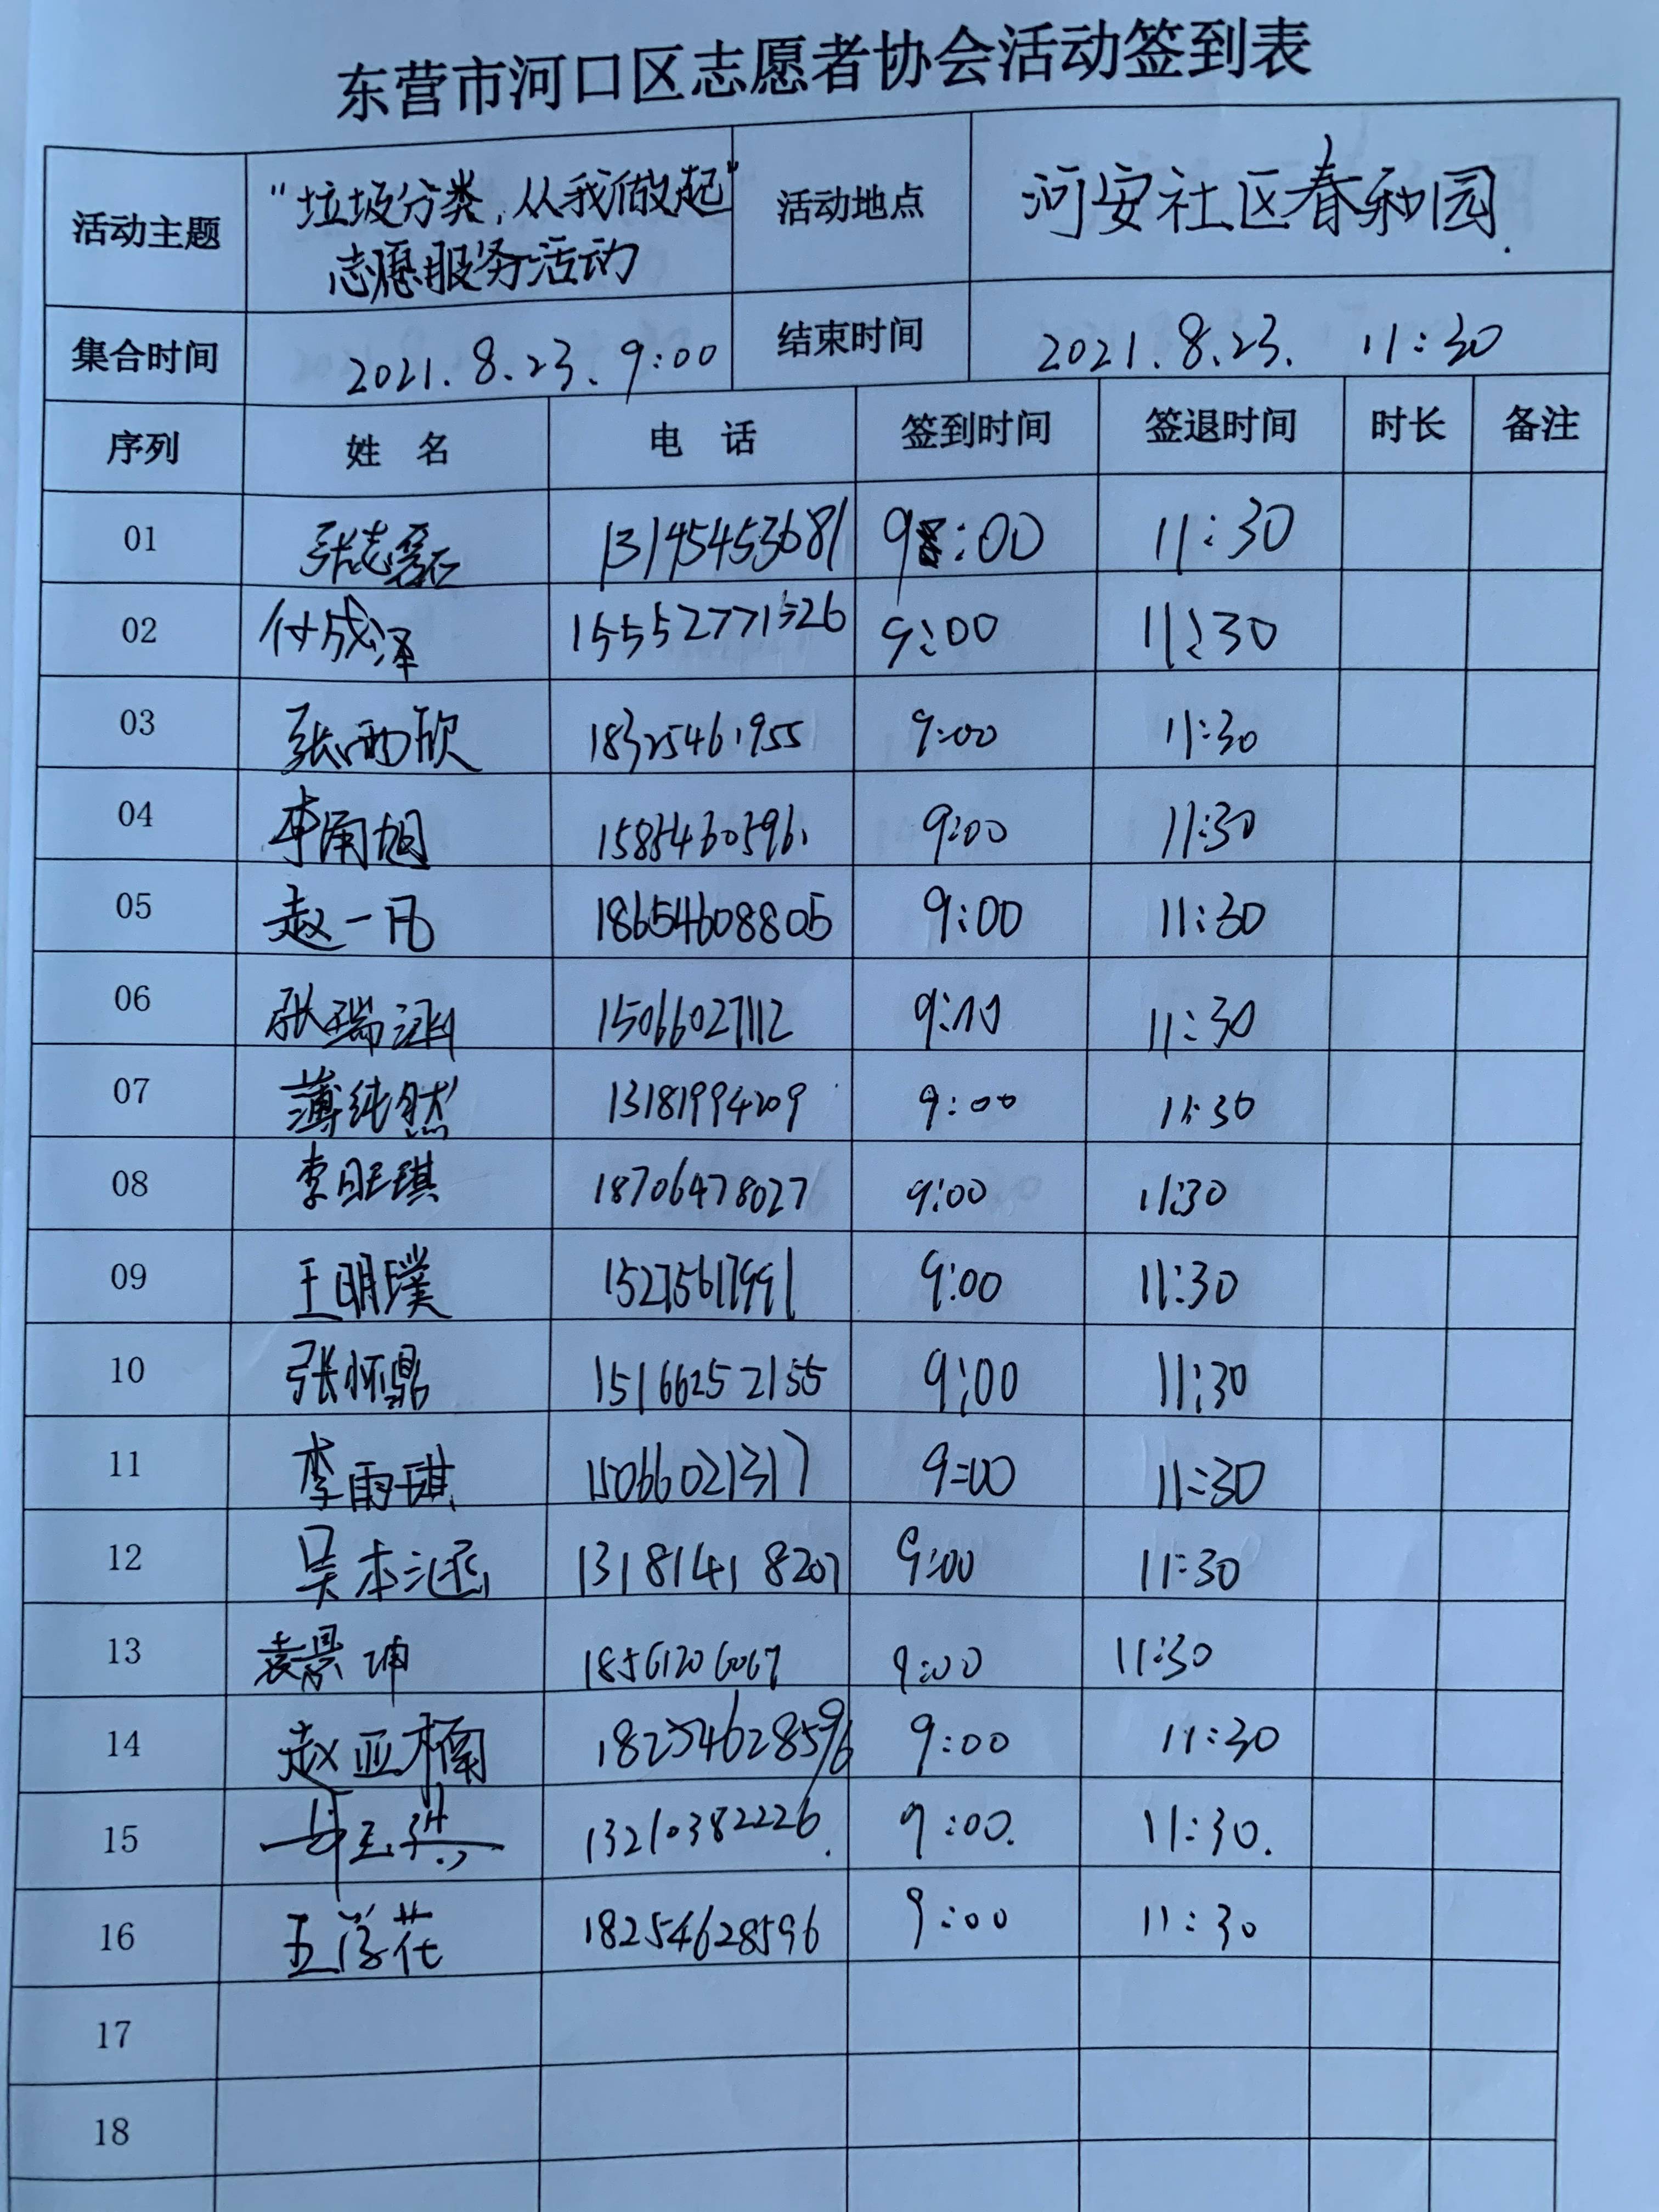 东营市河口区志愿者协会活动签到表
活动主题 "垃圾分类,从我做起" 活动地点 河安社区春和园.
志愿服务活动
集合时间 2021.8.23.9:00 结束时间 2021.8.23. 11:30
序列 姓名 电话 签到时间 签退时间 时长 备注
01 张志 13145453681 9:00 11:30
02 付成泽 15552771326 9:00 11:30
03 张雨欣 18325461955 9:00 11:30
04 李雨旭 9:00 11:30
05 赵一凡 18654608805 9:00 11:30
06 张瑞涵 15066027112 9:10 11:30
07 薄纯然 13181994209 9:00 11:30
08 李旺琪 18706478027 9:00 11:30
09 王明璞 15275617991 9:00 11:30
10 张怀鼎 15166252155 9:00 11:30
11 李雨琪 15066021317 9:00 11:30
12 吴本涵 13181418207 9:00 11:30
13 袁景坤 18561206067 9:00 11:30
14 赵亚楠 18254628596 9:00 11:30
15 13210382226. 9:00. 11:30.
16 王学花 18254628596 9:00 11:30
17
18